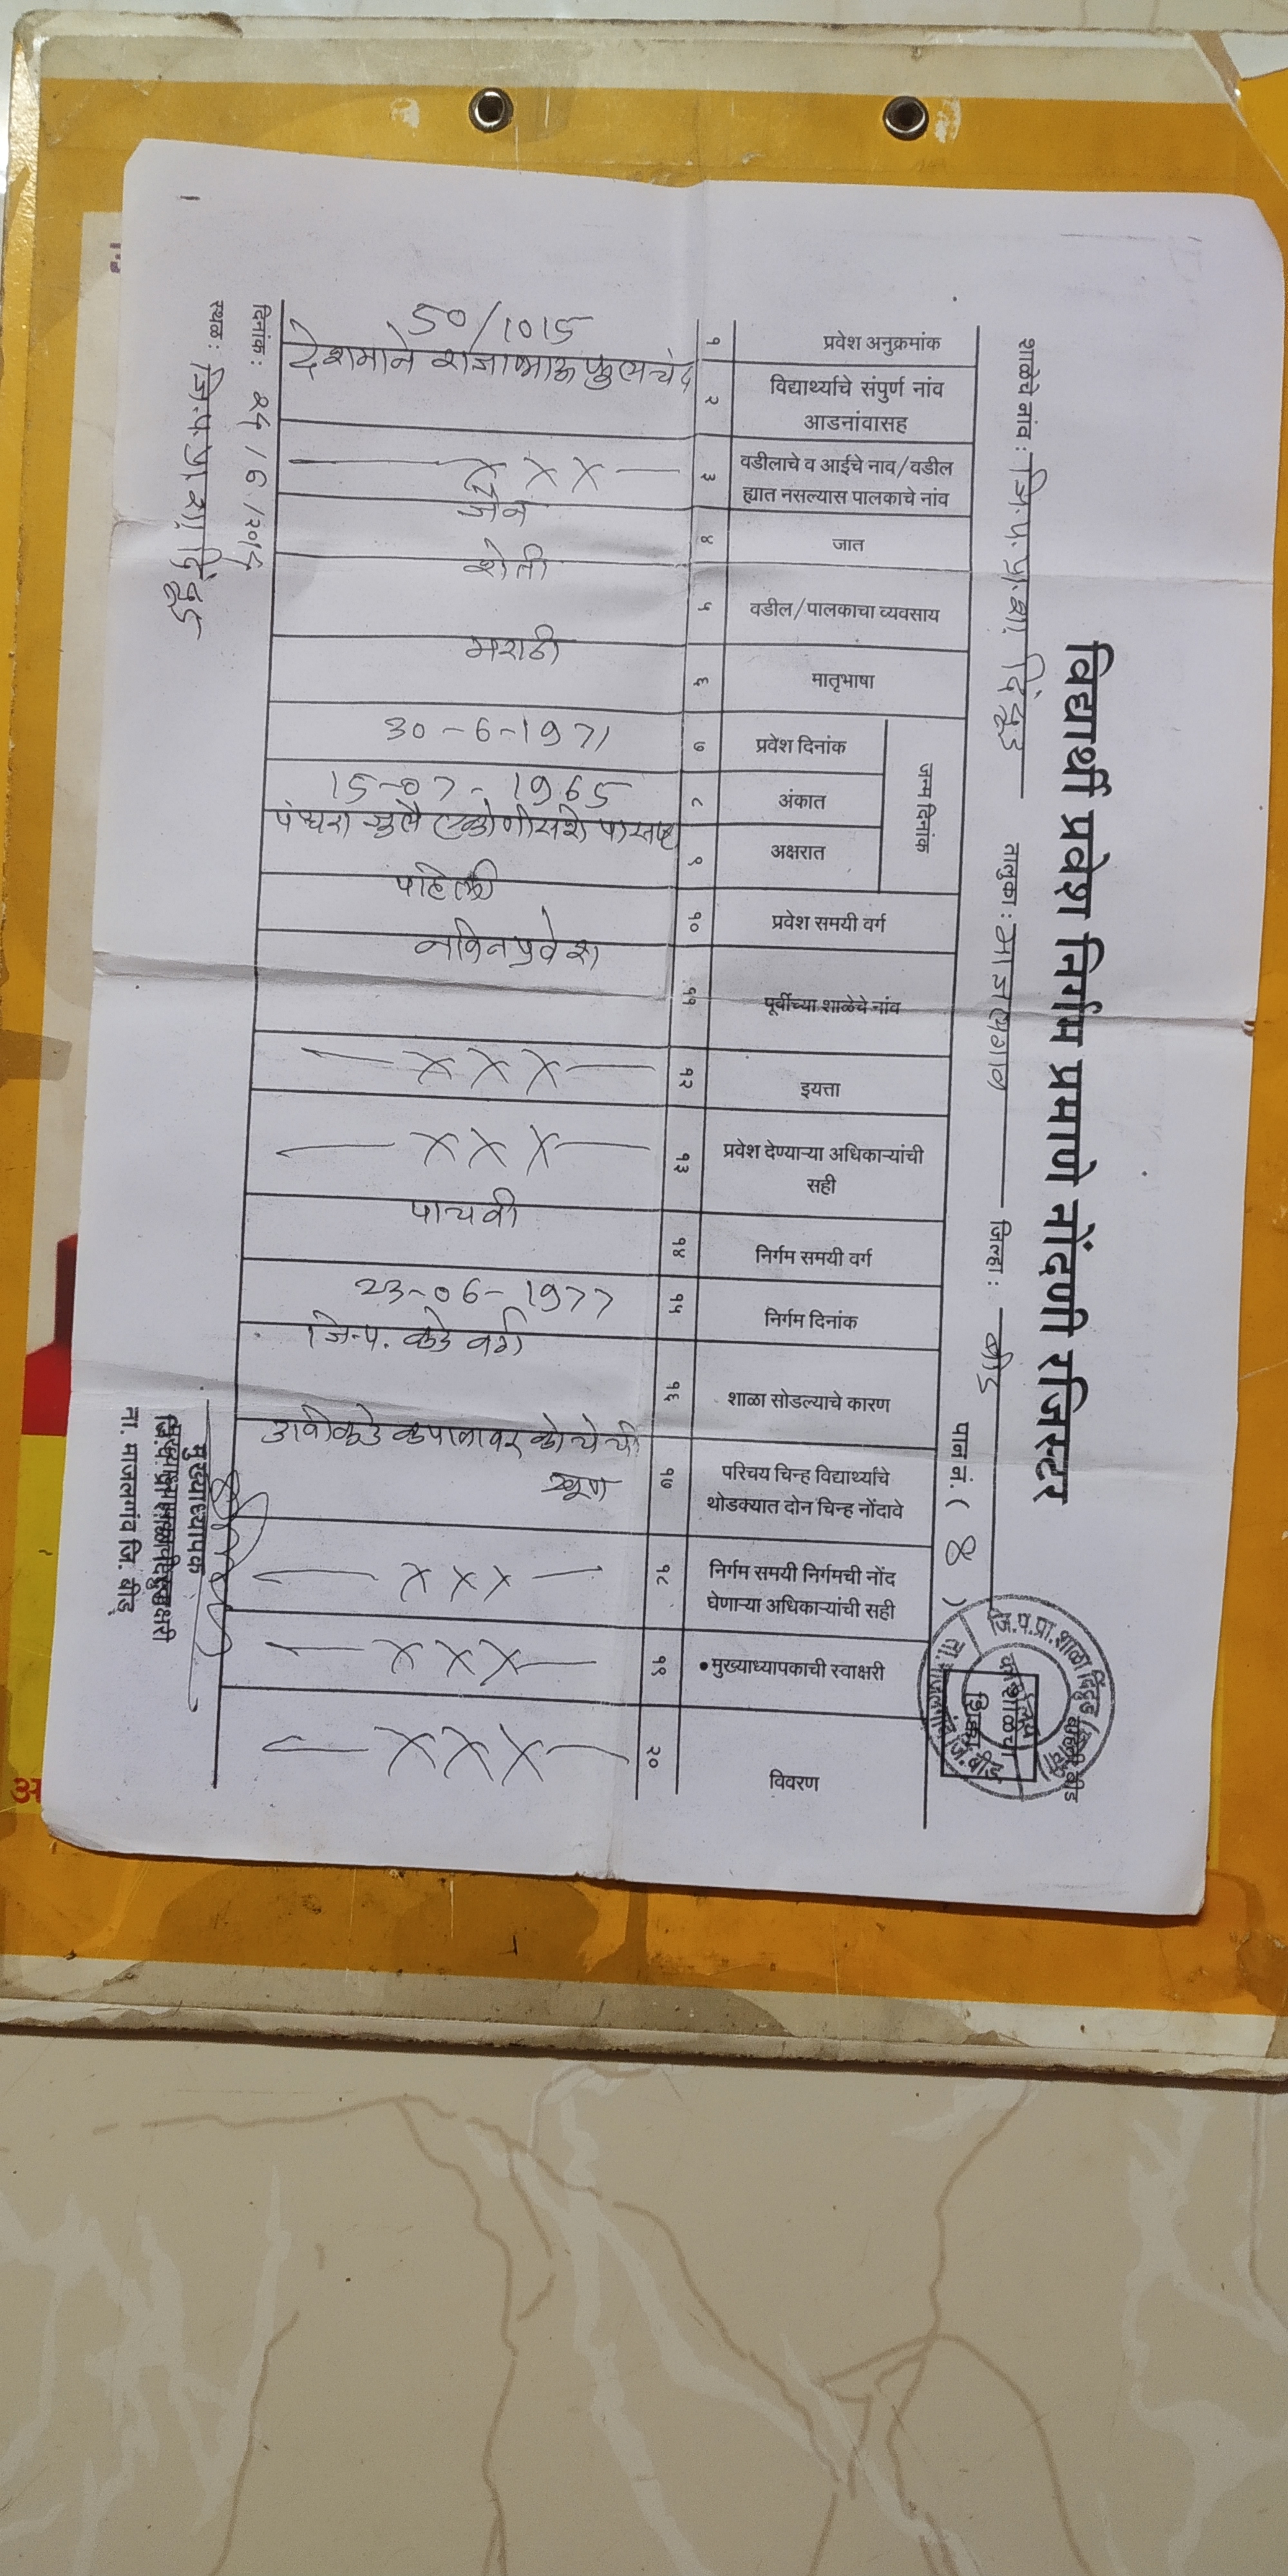 विद्यार्थी प्रवेश निर्गम प्रमाणे नोंदणी रजिस्टर
शाळेचे नांव : जि.प.प्रा.शा. दिंद्रुड तालुका : माजलगाव जिल्हा : बीड पान नं. ( 4 )
प्रवेश अनुक्रमांक
विद्यार्थ्याचे संपुर्ण नांव
आडनांवासह
वडीलाचे व आईचे नाव/वडील
ह्यात नसल्यास पालकाचे नांव
जात
वडील/पालकाचा व्यवसाय
मातृभाषा
जन्म दिनांक
प्रवेश दिनांक
अंकात
अक्षरात
प्रवेश समयी वर्ग
पूर्वीच्या शाळेचे नांव
इयत्ता
प्रवेश देण्याऱ्या अधिकाऱ्यांची
सही
निर्गम समयी वर्ग
निर्गम दिनांक
शाळा सोडल्याचे कारण
परिचय चिन्ह विद्यार्थ्याचे
थोडक्यात दोन चिन्ह नोंदावे
निर्गम समयी निर्गमची नोंद
घेणाऱ्या अधिकाऱ्यांची सही
मुख्याध्यापकाची स्वाक्षरी
विवरण
१ २ ३ ४ ५ ६ ७ ८ ९ १० ११ १२ १३ १४ १५ १६ १७ १८ १९ २०
50/1015
देशमाने राजाभाऊ फुलचंद
— X X X —
जैन
शेती
मराठी
30-6-1971
15-07-1965
पंधरा जुलै एकोणीसशे पासष्ट
पहिली
नविन प्रवेश
— X X X —
— X X X —
पाचवी
23-06-1977
जि.प. कडे वर्ग
उजवीकडे कपाळावर कोचेची
खूण
— X X X —
— X X X —
— X X X —
दिनांक : 25/6/2015
स्थळ : जि.प.प्रा.शा. दिंद्रुड
मुख्याध्यापक
ता. माजलगांव जि. बीड
जि.प.प्रा.शाळा दिंद्रुड